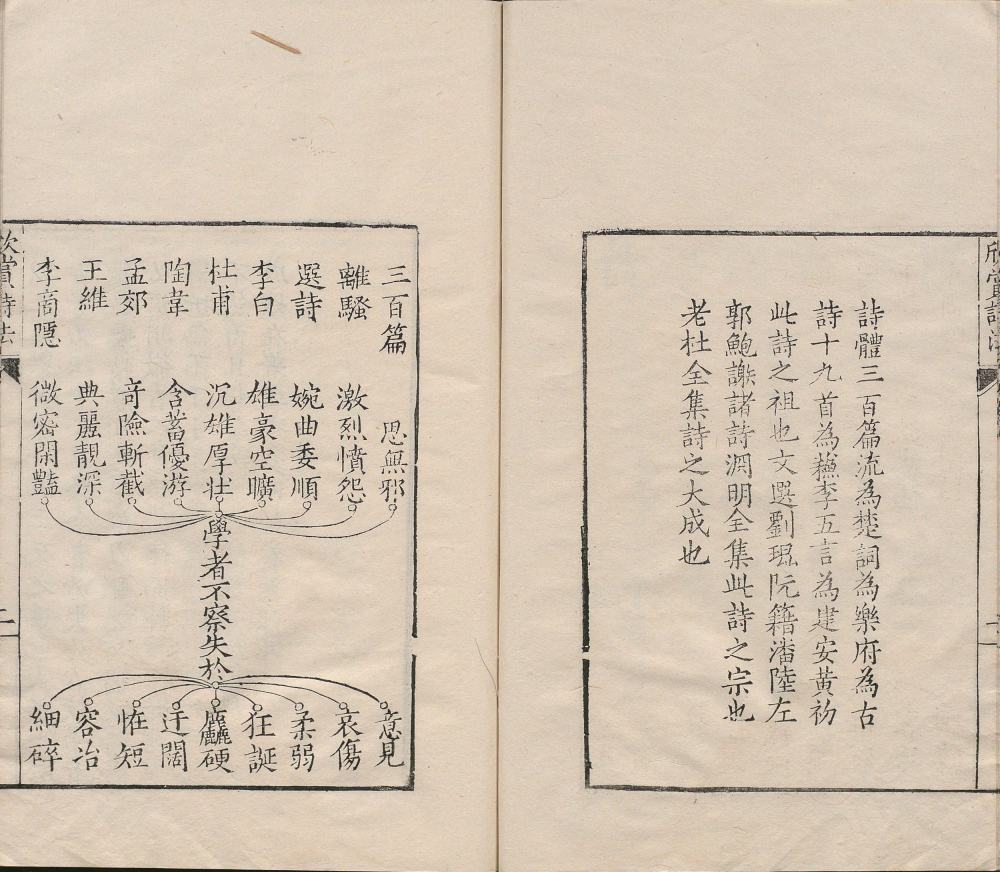 詩體三百篇流為楚詞為樂府為古
詩十九首為蘓李五言為建安黄初
此詩之祖也文選劉琨阮籍潘陸左
郭鮑謝諸詩淵明全集此詩之宗也
老杜全集詩之大成也
三百篇 思無邪
離騷 激烈憤怨
選詩 婉曲委順
李白 雄豪空曠
杜甫 沉雄厚壮
陶韋 含蓄優游
孟郊 竒險斬截
王維 典麗靚深
李商隱 微密閑豔
學者不察失於
意見
哀傷
柔弱
狂誕
麤硬
迂闊
恠短
容冶
細碎
欣賞詩法
二